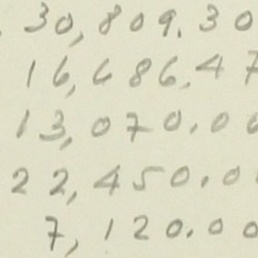 30,809.30
16,686.47
13,070.00
22,450.00
7,120.00